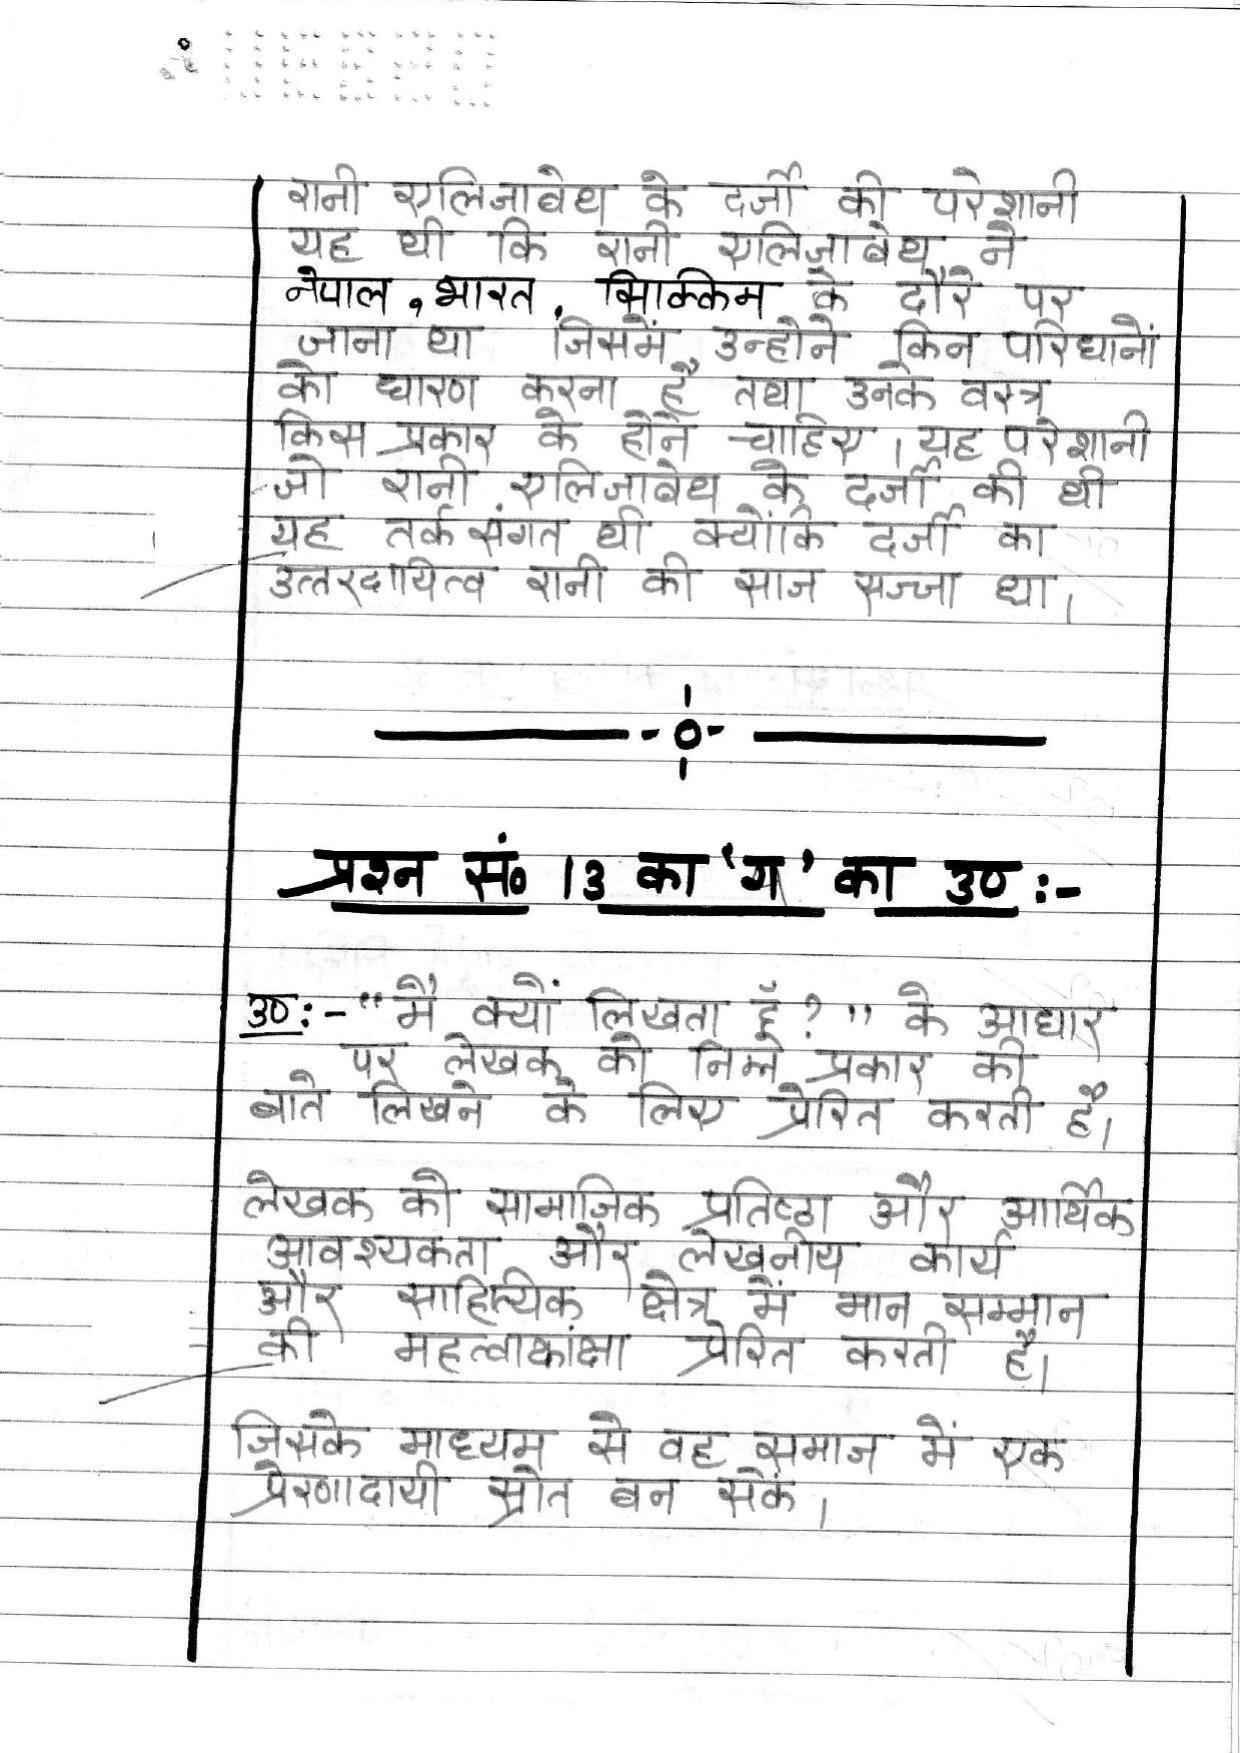 रानी एलिजाबेथ के दर्जी की परेशानी
यह थी कि रानी एलिजाबेथ ने
नेपाल, भारत, सिक्किम के दौरे पर
जाना था जिसमें उन्होने किन परिधानों
को धारण करना है तथा उनके वस्त्र
किस प्रकार के होने चाहिए। यह परेशानी
जो रानी एलिजाबेथ के दर्जी की थी
यह तर्क संगत थी क्योंकि दर्जी का
उत्तरदायित्व रानी की साज सज्जा था।
प्रश्न सं० 13 का 'ग' का उ० :-
उ० :- "मैं क्यों लिखता हूँ ?" के आधार
पर लेखक को निम्न प्रकार की
बाते लिखने के लिए प्रेरित करती है।
लेखक को सामाजिक प्रतिष्ठा और आर्थिक
आवश्यकता और लेखनीय कार्य
और साहित्यिक क्षेत्र में मान सम्मान
की महत्वाकांक्षा प्रेरित करती है।
जिसके माध्यम से वह समाज में एक
प्रेरणादायी स्रोत बन सकें।